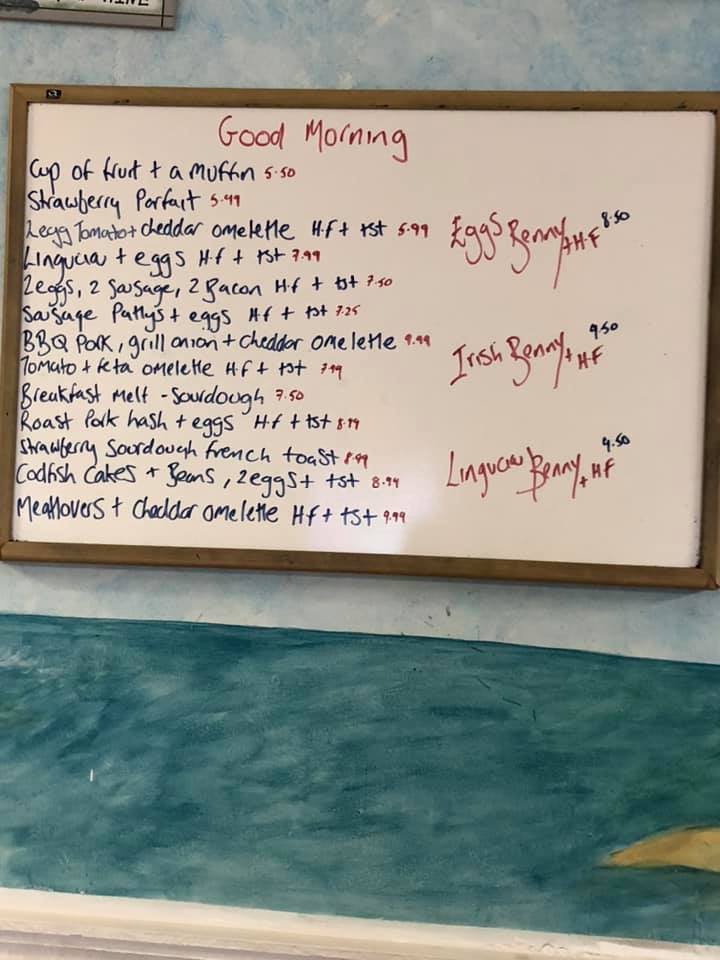 Good Morning
Cup of fruit + a muffin 5.50
Strawberry Parfait 5.49
2egg Tomato + cheddar omelette Hf + tst 5.99
Linguica + eggs Hf + tst 7.99
2eggs, 2 Sausage, 2 Bacon Hf + tst 7.50
Sausage Pattys + eggs Hf + tst 7.25
BBQ Pork, grill onion + cheddar omelette 9.99
Tomato + feta omelette Hf + tst 7.99
Breakfast melt - Sourdough 7.50
Roast Pork hash + eggs Hf + tst 8.99
Strawberry Sourdough french toast 8.99
Codfish Cakes + Beans, 2eggs + tst 8.99
Meatlovers + Cheddar omelette Hf + tst 9.99
Eggs Benny + HF 8.50
Irish Benny + HF 9.50
Linguica Benny + HF 9.50